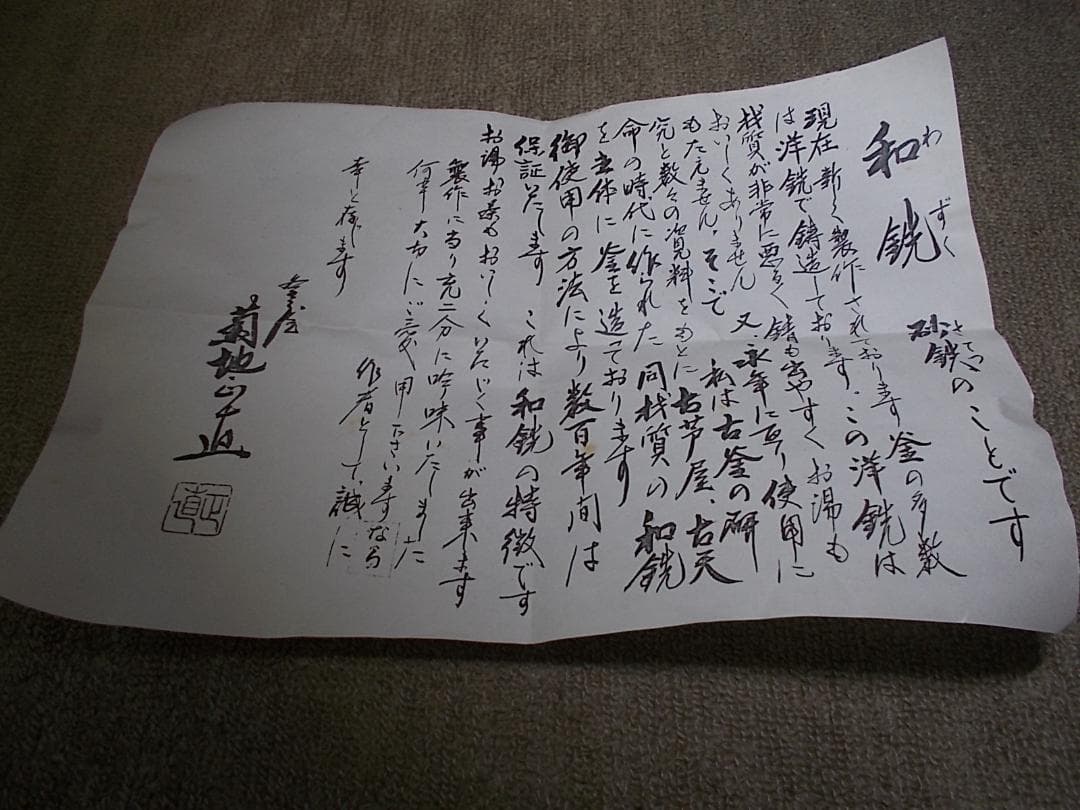 和銑 わずく
砂鉄のことです さてつ
現在新しく製作されております釜の多数
は洋銑で鋳造しております。この洋銑は
材質が非常に悪るく錆も出やすくお湯も
おいしくありません 又永年に亘り使用に
もたえません。そこで 私は古釜の研
究と数々の資料をもとに古芦屋、古天
命の時代に作られた同材質の和銑
を主体に釜を造っております
御使用の方法により数百年間は
保証いたします これは和銑の特徴です
お湯お茶もおいしくいただく事が出来ます
製作に当り充二分に吟味いたしました
何卒大切にご愛用下さいますなら
作者として誠に
幸と存じます
釜屋
菊地正直
正直